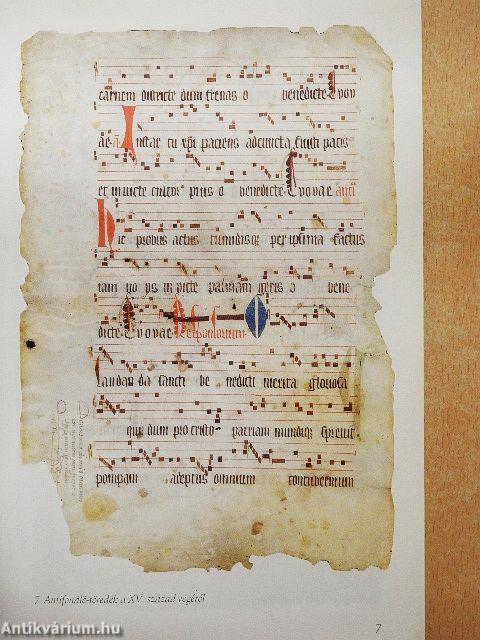 carnem districte dum frenas o benedicte Evov
ae a Instar tu xpi paciens ad cuncta fuisti pacis
et inuicte cultor pius o benedicte Evovae anti
Hic probus actus tumidisque per ipsima factus
iam no us in uicte palmam geris o bene
dicte Evovae Responsorium
Laudanda sancti benedicti merita gloriosa
qui dum pro cristo patriam mundique spreuit
pompam adeptus omnium contubernium
7. Antifonálé-töredék a XV. század végéről
7
Antikvárium.hu